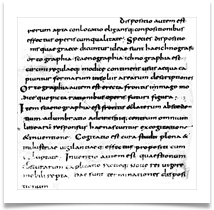 Dispositio autem est
rerum apta conlocatio elegansq; compositionibus
effectus operis cum qualitate. Species disposition
nis quae graece dicuntur ideae sunt hae ichnografia
orthographia scaenographia. Ichnographia est
circini regulaeque modice continens usus ex qua ca
piuntur formarum in solis arearum descriptiones
Orthographia autem est erecta frontis imago mo
dice que picta rationibus operis futuri figura.
Item scaenographia est frontis et laterum absceden
tium adumbratio ad circinique centrum omnium
linearum responsus. hae nascuntur ex cogitatione
& inuentione. Cogitatio est cura studii plena &
industriae uigilantiaeque effectus propositi cum
uoluptate. Inuentio autem est quaestionum
obscurarum explicatio ratioque nouae rei uigore
mobili reperta. hae sunt terminationes disposi
tionum